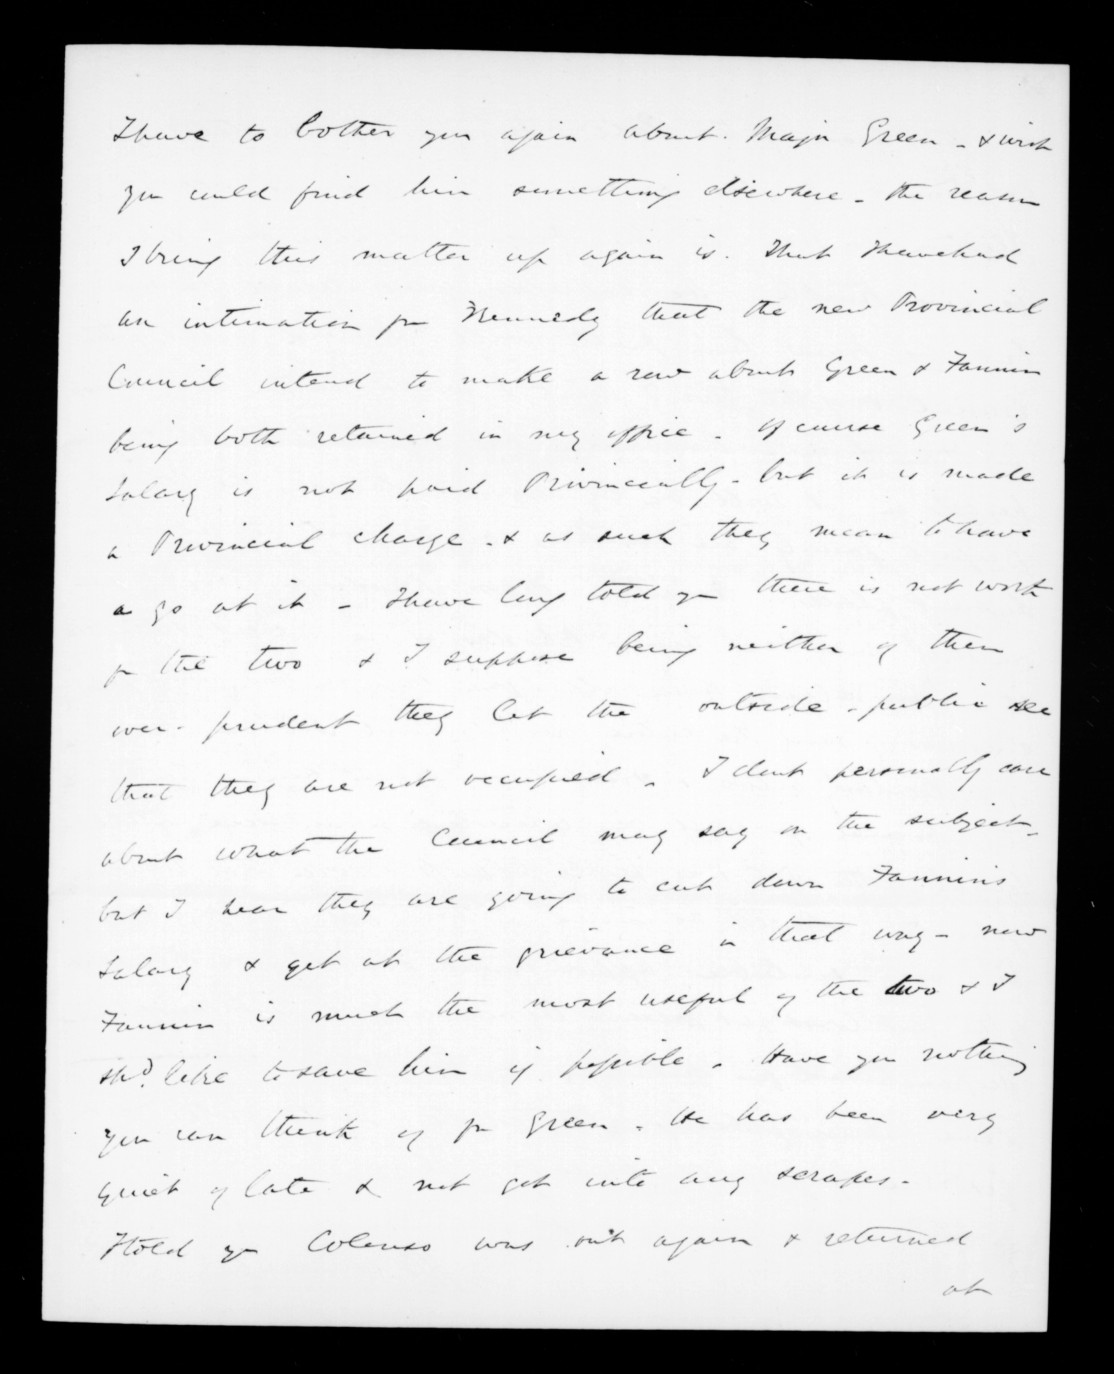 I have to bother you again about. Major Green - & wish
you could find him something elsewhere - the reason
I bring this matter up again is. that I have had
an intimation fm Kennedy that the new Provincial
Council intend to make a row about Green & Fannin
being both retained in my office. Of course Green's
Salary is not paid Provincially - but it is made
a Provincial charge. & as such they mean to have
a go at it - I have long told you there is not work
for the two & I suppose being neither of them
over-prudent they let the outside-public see
that they are not occupied. I dont personally care
about what the Council may say on the subject -
but I hear they are going to cut down Fannin's
Salary & get at the grievance in that way - now
Fannin is much the most useful of the two & I
shd. like to save him if possible. Have you nothing
you can think of for Green. He has been very
quiet of late & not got into any scrapes -
I told you Colenso was out again & returned
at